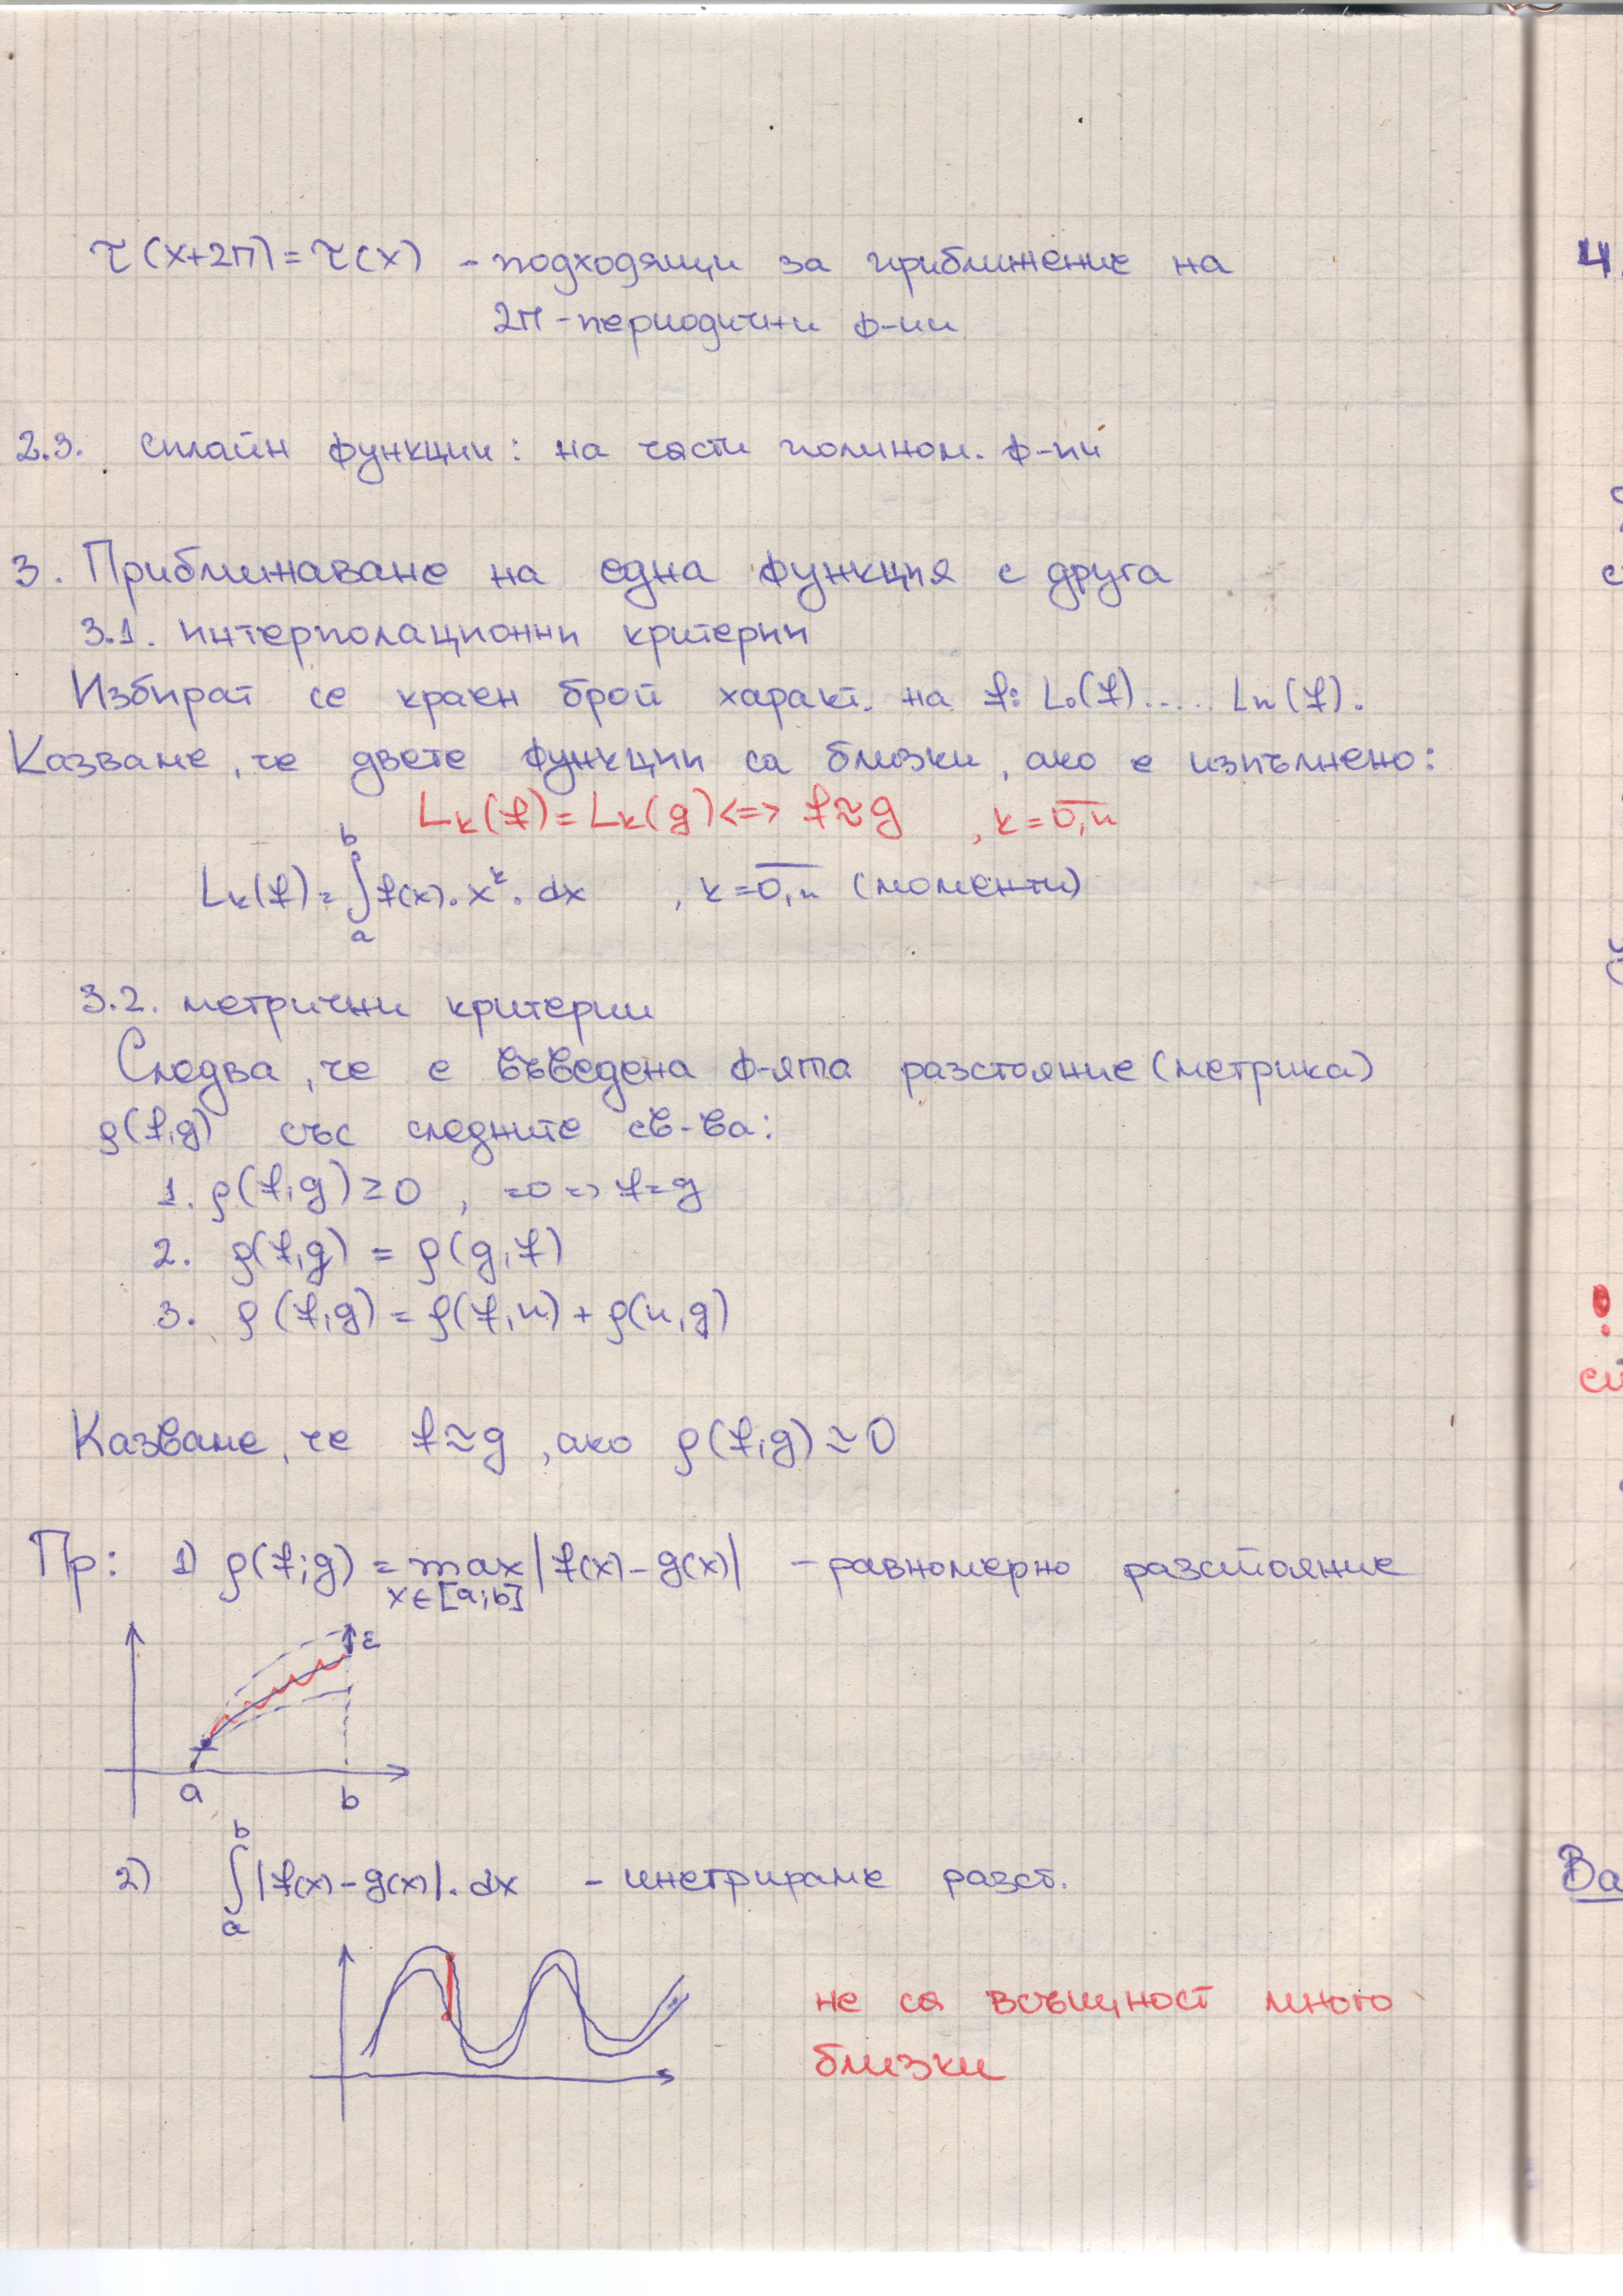 τ(x+2π) = τ(x) - подходящи за приближение на
2π-периодични ф-ии
2.3. сплайн функции: на части полином. ф-ии
3. Приближаване на една функция с друга
3.1. интерполационни критерии
Избират се краен брой характ. на f: L₀(f).... Lₙ(f).
Казваме, че двете функции са близки, ако е изпълнено:
Lₖ(f) = Lₖ(g) <=> f ≈ g , k = 0,n
Lₖ(f) = ∫ₐᵇ f(x).xᵏ.dx , k = 0,n (моменти)
3.2. метрични критерии
Следва, че е въведена ф-ята разстояние (метрика)
ρ(f,g) със следните св-ва:
1. ρ(f,g) ≥ 0 , =0 => f=g
2. ρ(f,g) = ρ(g,f)
3. ρ(f,g) = ρ(f,n) + ρ(n,g)
Казваме, че f ≈ g, ако ρ(f,g) ≈ 0
Пр: 1) ρ(f;g) = max |f(x) - g(x)| - равномерно разстояние
x∈[a;b]
ε
a b
2) ∫ₐᵇ |f(x) - g(x)|.dx - инетрираме разст.
не са всъщност много
близки
4.
Ва